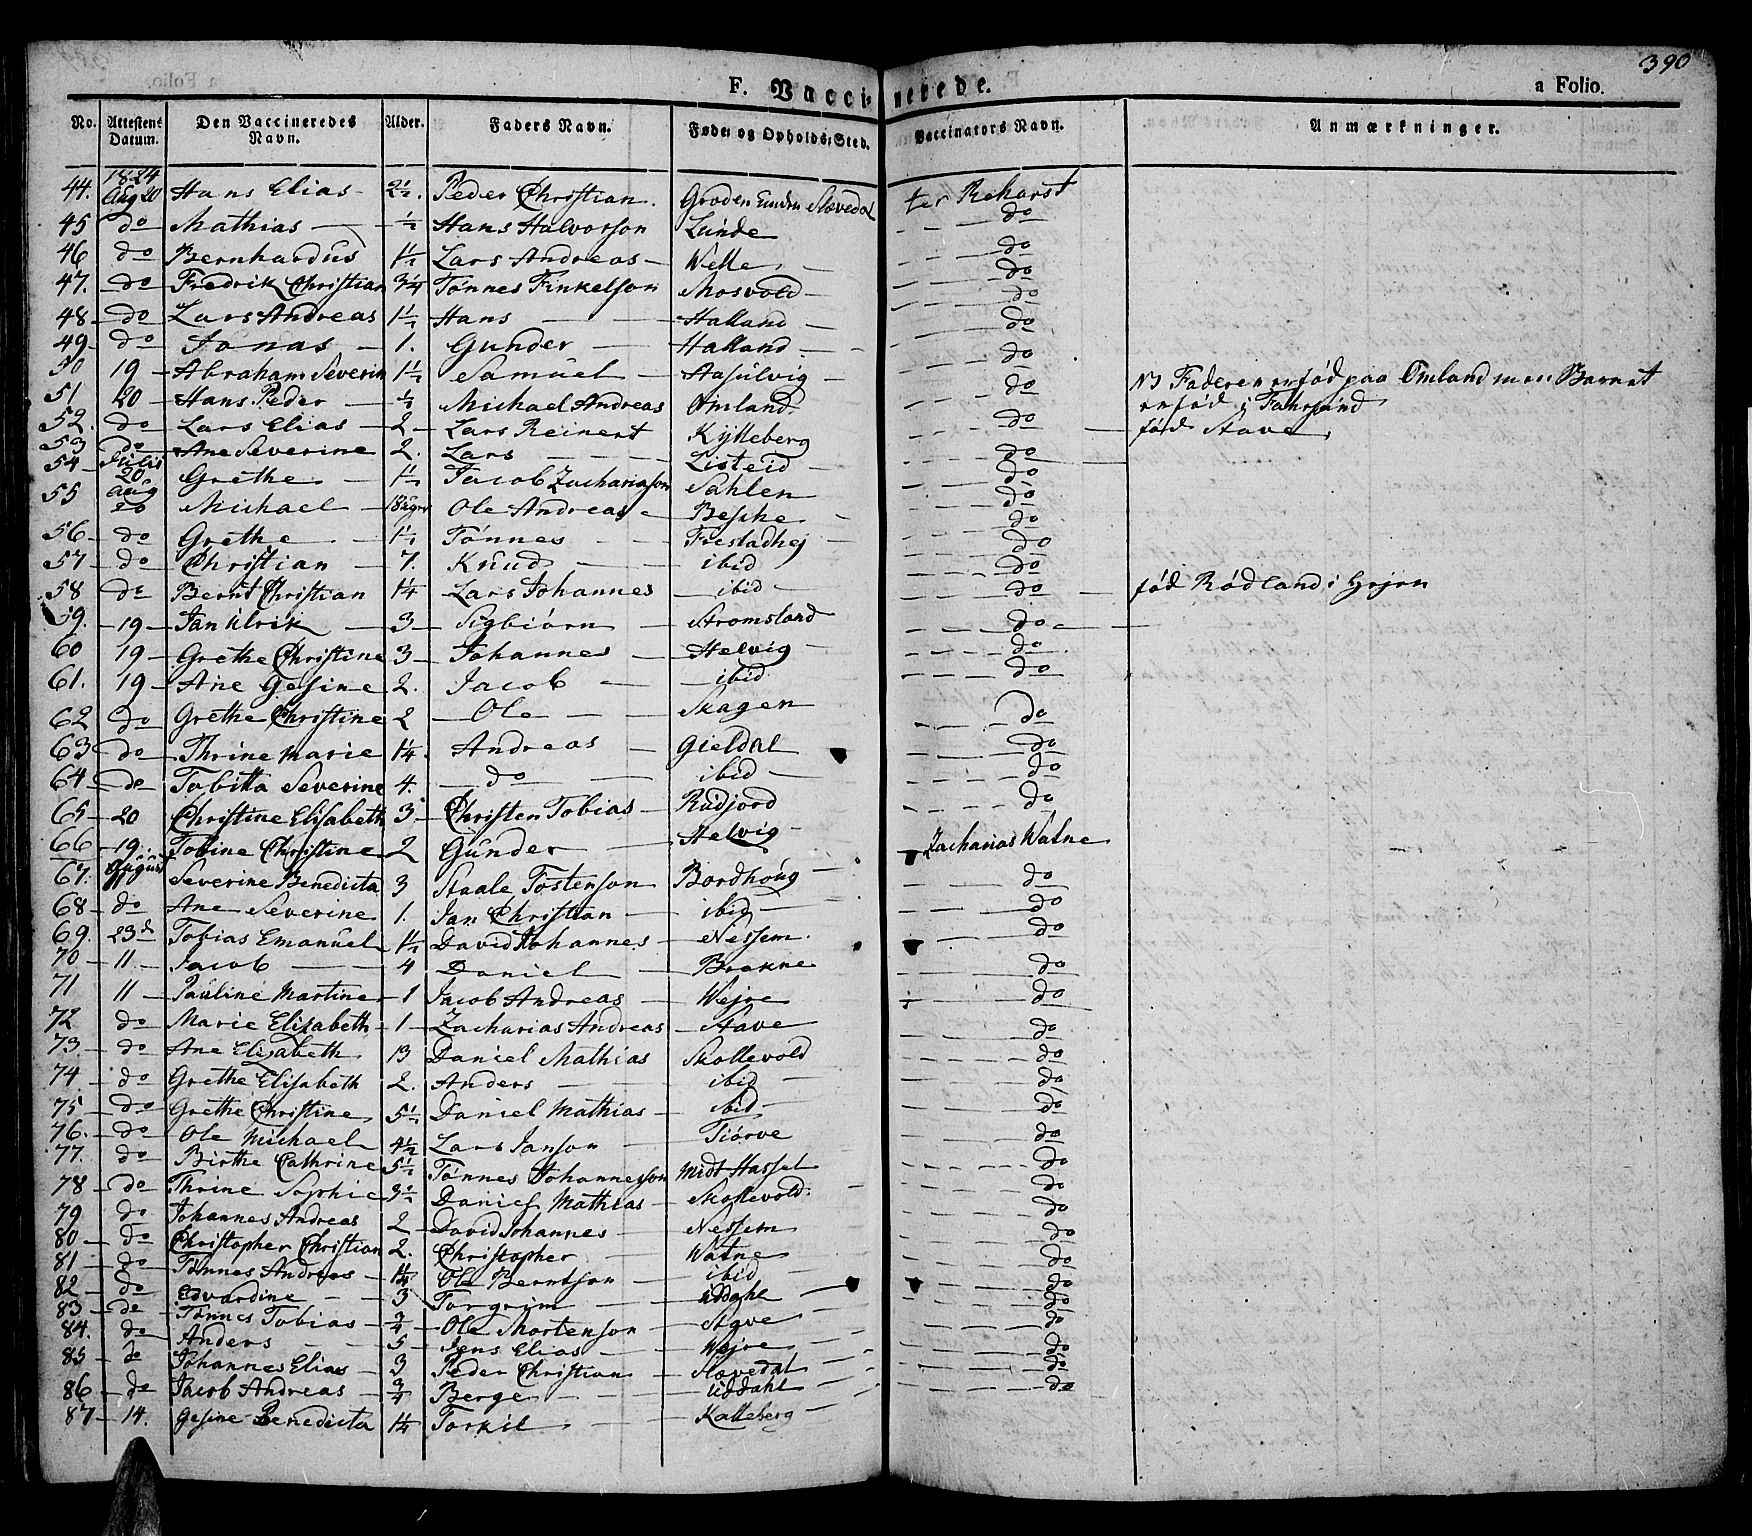 390
F. Vaccinerede. a Folio.
No. Attestens Datum. Den Vaccineredes Navn. Alder. Faders Navn. Føde- og Opholds-Sted. Vaccinators Navn. Anmærkninger.
1824
44. Aug 20 Hans Elias 2½. Peder Christian. Groden Slævedal
45 do Mathias ½ Hans Halvorson Lunde do
46 do Bernhardus 1½ Lars Andreas Welle do
47. do Fredrik Christian 3/4 Tønnes Mosvold do
48 do Lars Andreas 1½ Hans Halland do
49 do Jonas 1. Gunder Halland do
50 19 Abraham Severin 1½ Samuel Aasulvig do
51 20 Hans Peder ½ Michael Andreas Omland. do NB Faderen er fød paa Omland men Barnet
er fød i Fahrsund
52. do Lars Elias 2 Lars Reinert Kjlleberg do fød Stave
53 do Ane Severine 2. Lars Listeid do
54 Julii 20 Grethe 1½ Jacob Zachariasson Sahlen do
55 Aug 20 Michael 18 uger Ole Andreas do
56 do Grethe 1½ Tønnes do
57 do Christian 7. Knud ibid do
58 do Bernt Christian 1¼ Lars Johannes ibid do fød Rødland i
59. 19 Jan Ulrik 3 Sigbiørn Stromsland do
60 19 Grethe Christine 3 Johannes Helvig do
61. 19 Ane Gesine 2. Jacob ibid do
62 do Grethe Christine 2 Ole Skagen do
63 do Thrine Marie 1¼. Andreas Gieldal do
64 do Tobitta Severine 4. do ibid do
65 20 Christine Elisabeth 3 Christen Tobias Rudjord do
66 19. Tobine Christine 2 Gunder Helvig Zacharias Watne
67. August Severine Benedicta 3 Staale Tostenson Bordhoug do
68 do Ane Severine 1. Jan Christian ibid do
69. 23d Tobias Emanuel 1½ David Johannes Nessem. do
70 11 Jacob 4 Daniel Brekne do
71 11 Pauline Martine 1 Jacob Andreas Wejre do
72 do Marie Elisabeth 1 Zacharias Andreas Stave do
73. do Ane Elisabeth 13 Daniel Mathias Skollevold do
74 do Grethe Elisabeth 2. Anders ibid do
75 do Grethe Christine 5½ Daniel Mathias ibid do
76. do Ole Michael 4½ Lars Janson Tiørve do
77. do Birthe Cathrine 5½ Tønnes Johannesson Midt Hassel do
78 do Thrine Sophie 3½ Daniel Mathias Skollevold do
79 do Johannes Andreas 2 David Johannes Nessem do
80 do Christopher Christian 2. Christopher Watne do
81 do Tønnes Andreas 1¼ Ole Berntson ibid do
82 do Edvardine 3 Torgrim Uddahl do
83 do Tønnes Tobias ¾ Ole Mortenson Stave do
84. do Anders 5 Jens Elias Wejre do
85 do Johannes Elias 3 Peder Christian Slævedal do
86 do Jacob Andreas ¾ Berge Uddahl do
87 14. Gesine Benedicta 1¼ Torkil Kalleberg